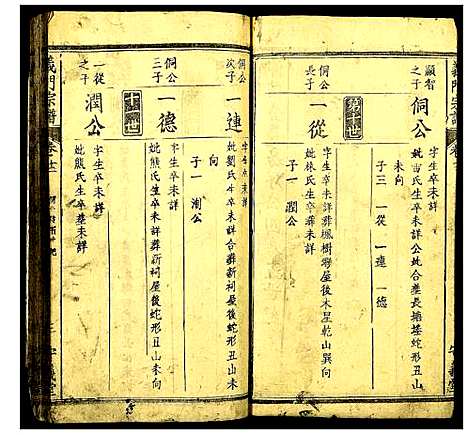 義門宗譜
顯智之子
侗公
字生卒未詳
妣古氏生卒未詳公妣合葬長塘墢蛇形丑山
未向
子三 一從 一連 一德
侗公長子
一從
字生卒未詳葬楓樹彎屋後木星乾山巽向
妣林氏生卒葬未詳
子一 潤公
侗公次子
一連
字生卒未詳
妣劉氏生卒未詳合葬新祠屋後蛇形丑山未
向
子一 潤公
侗公三子
一德
字生卒未詳
妣熊氏生卒未詳葬新祠屋後蛇形丑山未向
一從之子
潤公
字生卒未詳
妣熊氏生卒葬未詳
義門宗譜